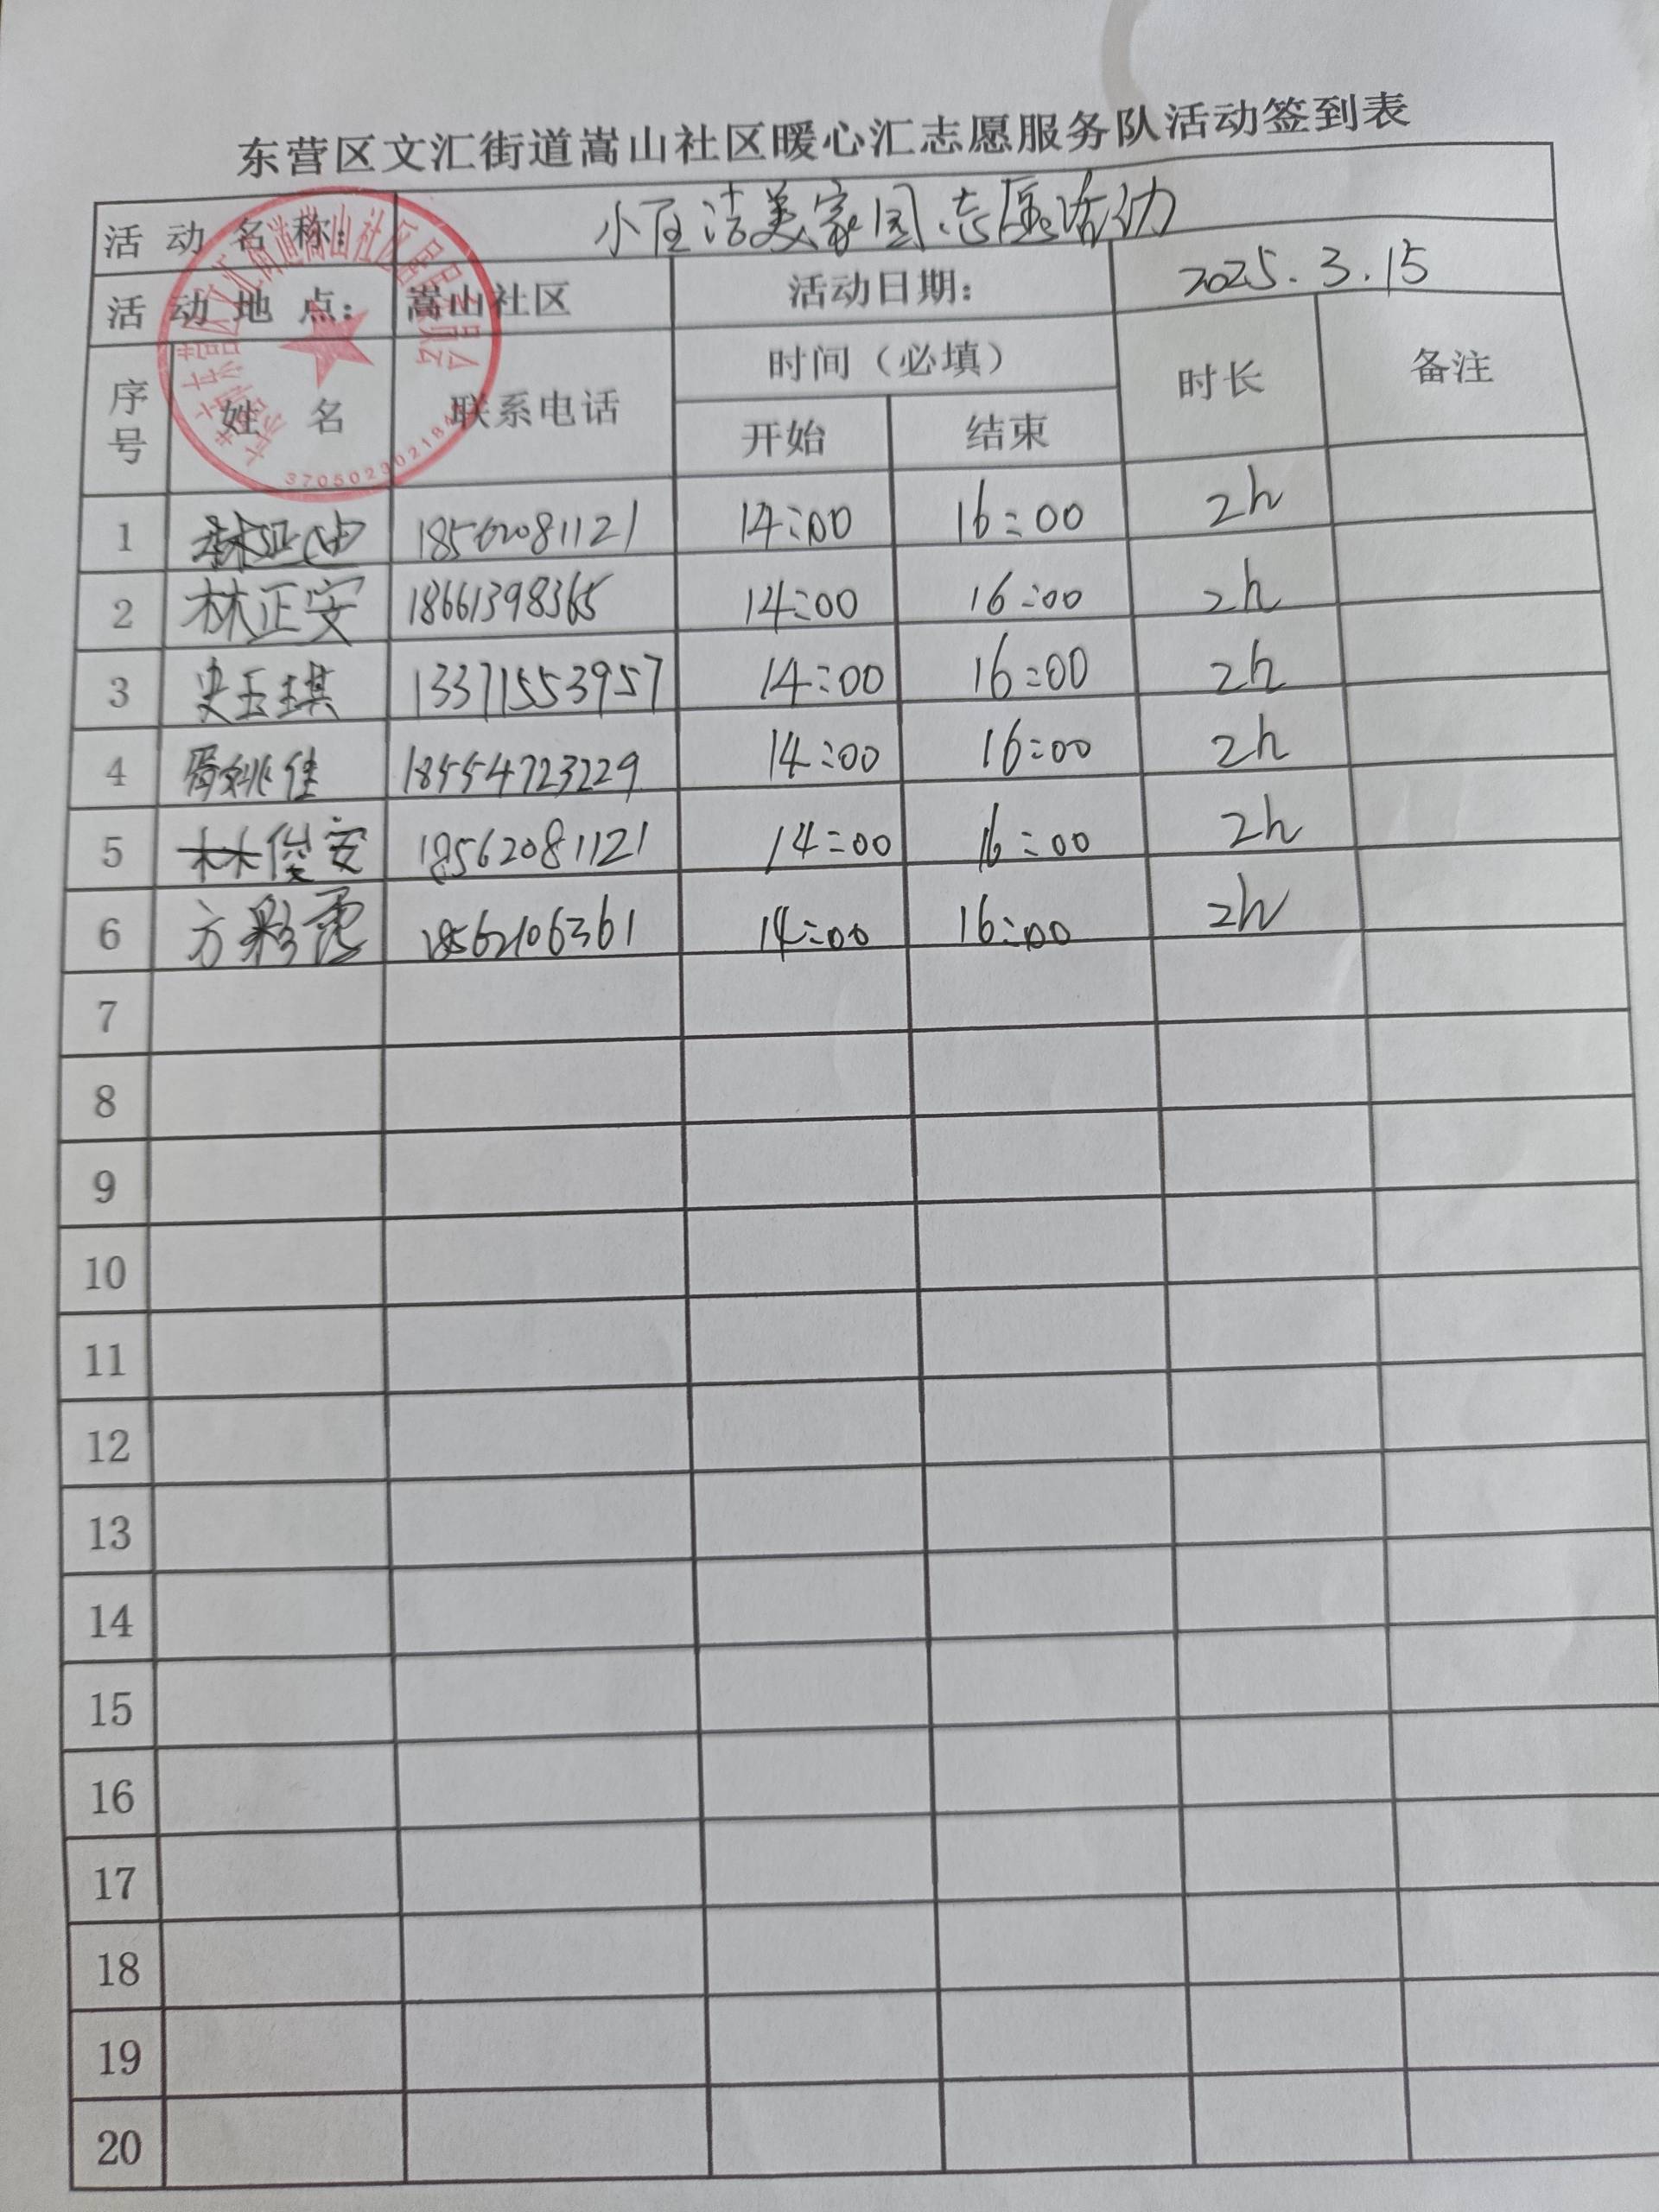 东营区文汇街道嵩山社区暖心汇志愿服务队活动签到表
活动名称： 小区洁美家园志愿活动
活动地点： 嵩山社区 活动日期： 2025.3.15
序号 姓名 联系电话 时间（必填） 时长 备注
开始 结束
1 18562081121 14:00 16:00 2h
2 林正安 18661398365 14:00 16:00 2h
3 史玉琪 13371553957 14:00 16:00 2h
4 18554723229 14:00 16:00 2h
5 林俊安 18562081121 14:00 16:00 2h
6 方彩霞 18562106361 14:00 16:00 2h
7
8
9
10
11
12
13
14
15
16
17
18
19
20